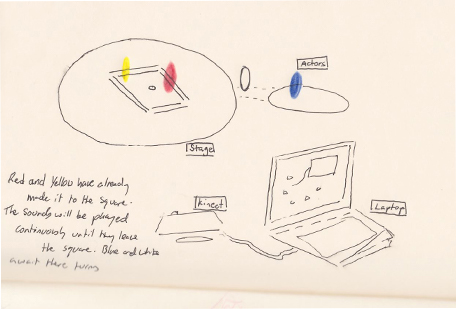 Actors
Stage
Red and Yellow have already
made it to the square.
The sounds will be played
continuously until they leave
the square. Blue and white
await there turns
kinect
Laptop